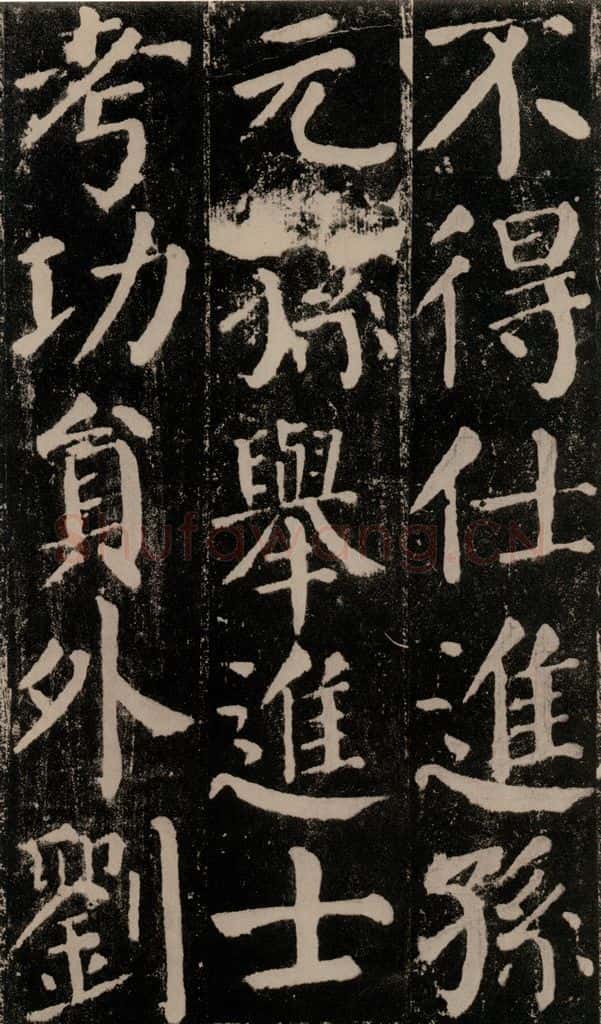 不得仕進孫
元孫舉進士
考功貟外劉
Shufawang.CN